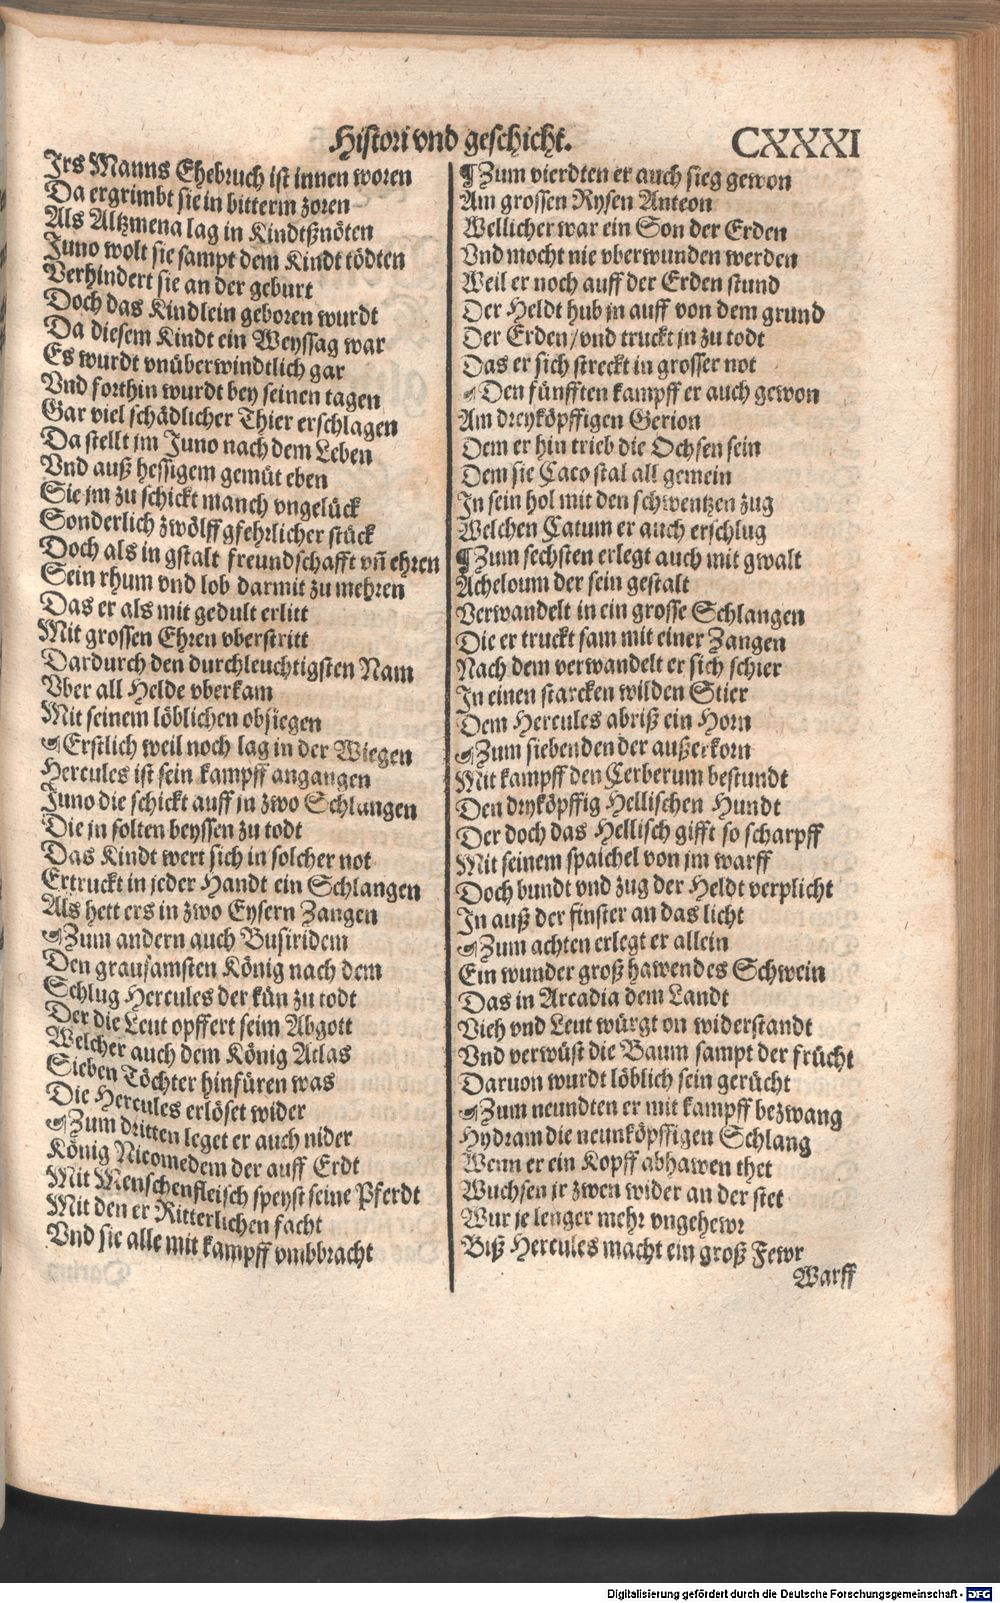 Histori vnd geschicht.
CXXXI
Irs Manns Ehebruch ist innen woren
Da ergrimbt sie in bitterm zoren
Als Altzmena lag in Kindtßnöten
Juno wolt sie sampt dem Kindt tödten
Verhindert sie an der geburt
Doch das Kindlein geboren wurdt
Da diesem Kindt ein Weyssag war
Es wurdt vnüberwindtlich gar
Vnd forthin wurdt bey seinen tagen
Gar viel schädlicher Thier erschlagen
Da stellt jm Juno nach dem Leben
Vnd auß hessigem gemüt eben
Sie jm zu schickt manch vngelück
Sonderlich zwölff gfehrlicher stück
Doch als in gstalt freundschafft vñ ehren
Sein rhum vnd lob darmit zu mehren
Das er als mit gedult erlitt
Mit grossen Ehren vberstritt
Dardurch den durchleuchtigsten Nam
Vber all Helde vberkam
Mit seinem löblichen obsiegen
☙ Erstlich weil noch lag in der Wiegen
Hercules ist sein kampff angangen
Juno die schickt auff jn zwo Schlangen
Die jn solten beyssen zu todt
Das Kindt wert sich in solcher not
Ertruckt in jeder Handt ein Schlangen
Als hett ers in zwo Eysern Zangen
☙ Zum andern auch Busiridem
Den grausamsten König nach dem
Schlug Hercules der kün zu todt
Der die Leut opffert seim Abgott
Welcher auch dem König Atlas
Sieben Töchter hinfüren was
Die Hercules erlöset wider
☙ Zum dritten leget er auch nider
König Nicomedem der auff Erdt
Mit Menschenfleisch speyst seine Pferdt
Mit den er Ritterlichen facht
Vnd sie alle mit kampff vmbbracht
¶ Zum vierdten er auch sieg gewon
Am grossen Rysen Anteon
Wellicher war ein Son der Erden
Vnd mocht nie vberwunden werden
Weil er noch auff der Erden stund
Der Heldt hub jn auff von dem grund
Der Erden/vnd truckt jn zu todt
Das er sich streckt in grosser not
☙ Den fünfften kampff er auch gewon
Am dreyköpffigen Gerion
Dem er hin trieb die Ochsen sein
Dem sie Caco stal all gemein
In sein hol mit den schwentzen zug
Welchen Catum er auch erschlug
¶ Zum sechsten erlegt auch mit gwalt
Acheloum der sein gestalt
Verwandelt in ein grosse Schlangen
Die er truckt sam mit einer Zangen
Nach dem verwandelt er sich schier
In einen starcken wilden Stier
Dem Hercules abriß ein Horn
☙ Zum siebenden der außerkorn
Mit kampff den Cerberum bestundt
Den dryköpffig Hellischen Hundt
Der doch das Hellisch gifft so scharpff
Mit seinem spaichel von jm warff
Doch bundt vnd zug der Heldt verplicht
In auß der finster an das licht
☙ Zum achten erlegt er allein
Ein wunder groß hawendes Schwein
Das in Arcadia dem Landt
Vieh vnd Leut würgt on widerstandt
Vnd verwüst die Baum sampt der frücht
Daruon wurdt löblich sein gerücht
☙ Zum neundten er mit kampff bezwang
Hydram die neunköpffigen Schlang
Wenn er ein Kopff abhawen thet
Wuchsen jr zwen wider an der stet
Wur je lenger mehr vngehewr
Biß Hercules macht ein groß Fewr
Warff
Digitalisierung gefördert durch die Deutsche Forschungsgemeinschaft - DFG